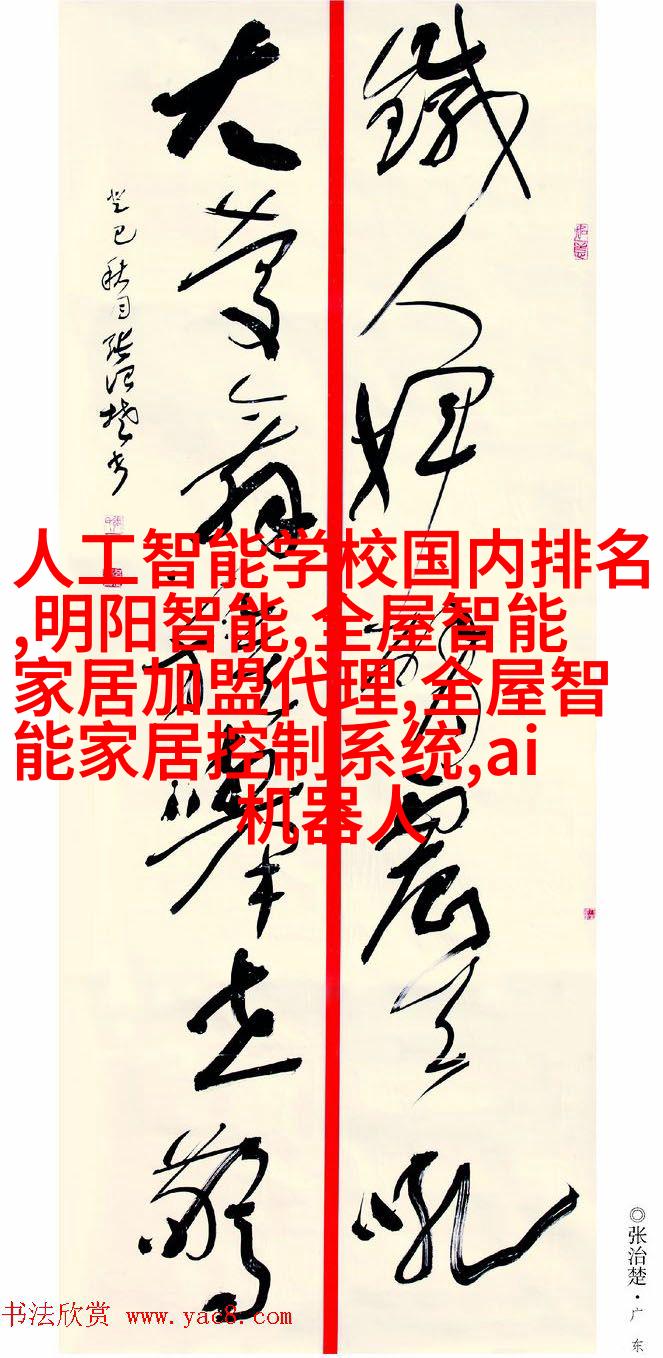 鐵人揮臂震天吼
大慶舉世驚
癸巳秋月張治楚書
人工智能学校国内排名
,明阳智能,全屋智能
家居加盟代理,全屋智
能家居控制系统,ai
机器人
◎张治楚·广东
书法欣赏 www.yac8.com